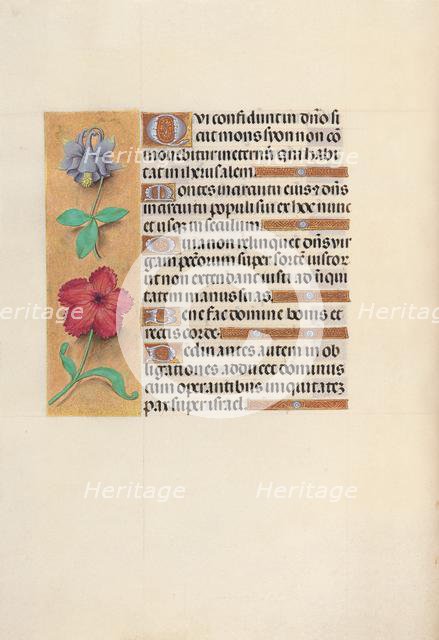 Heritage Heritage
Qui confidunt in dno si
cut mons syon non cō
mouebitur in eternū qui habi
tat in iherusalem.
Montes in circuitu eius et dns
in circuitu populi sui ex hoc nunc
et usq in seculum.
Quia non relinquet dns vir
gam peccatorum super sortē iustor
ut non extendant iusti ad iniqui
tatem manus suas.
Bene fac domine bonis et
rectis corde.
Declinantes autem in ob
ligationes adducet dominus
cum operantibus iniquitatez
pax super israel.
Heritage Heritage
Heritage Heritage